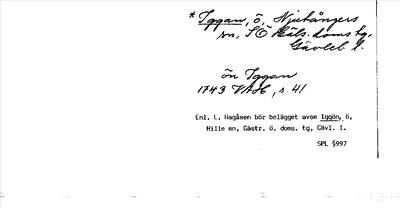 * Iggan, ö, Njutångers
sn, SÖ Häls. doms. tg,
Gävleb l.
ön Iggan
1743 VAH, s. 41
Enl. L. Hagåsen bör belägget avse Iggön, ö,
Hille sn, Gästr. ö. doms. tg, Gävl. l.
SPL §997